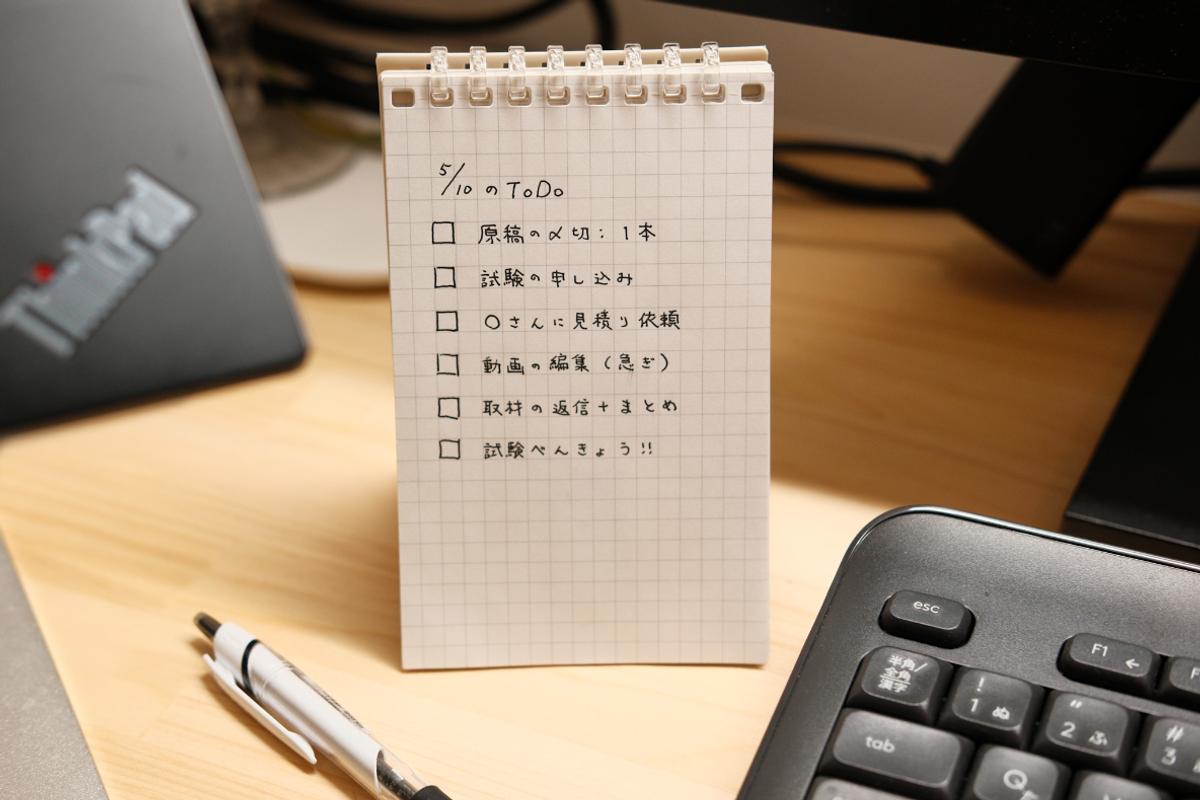 ThinkPad
5/10 のToDo
□ 原稿の〆切：1本
□ 試験の申し込み
□ ○さんに見積り依頼
□ 動画の編集（急ぎ）
□ 取材の返信+まとめ
□ 試験べんきょう!!
esc
F1 ←
半角/
全角
漢字
! 1 ぬ
" 2 ふ
# 3
tab
Q